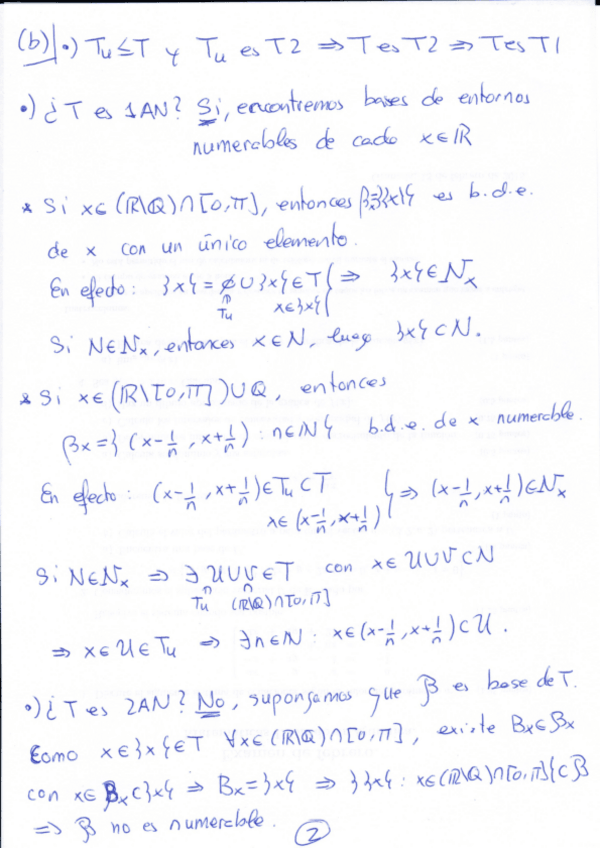 (b) •) Tu ≤ T y Tu es T2 ⇒ T es T2 ⇒ T es T1
•) ¿T es 1AN? Sí, encontremos bases de entornos
numerables de cada x∈ℝ
* Si x∈(ℝ\ℚ)∩[0,π], entonces βx={{x}} es b.d.e.
de x con un único elemento.
En efecto: {x} = ∅∪{x}∈T } ⇒ {x}∈Nx
Tu x∈{x}
Si N∈Nx, entonces x∈N, luego {x}⊂N.
* Si x∈(ℝ\[0,π])∪ℚ, entonces
βx={(x-1/n, x+1/n): n∈ℕ} b.d.e. de x numerable.
En efecto: (x-1/n, x+1/n)∈Tu⊂T } ⇒ (x-1/n, x+1/n)∈Nx
x∈(x-1/n, x+1/n)
Si N∈Nx ⇒ ∃ U∪V∈T con x∈U∪V⊂N
Tu (ℝ\ℚ)∩[0,π]
⇒ x∈U∈Tu ⇒ ∃n∈ℕ: x∈(x-1/n, x+1/n)⊂U.
•) ¿T es 2AN? No, supongamos que β es base de T.
Como x∈{x}∈T ∀x∈(ℝ\ℚ)∩[0,π], existe Bx∈βx
con x∈Bx⊂{x} ⇒ Bx={x} ⇒ {{x}: x∈(ℝ\ℚ)∩[0,π]}⊂β
⇒ β no es numerable.
2